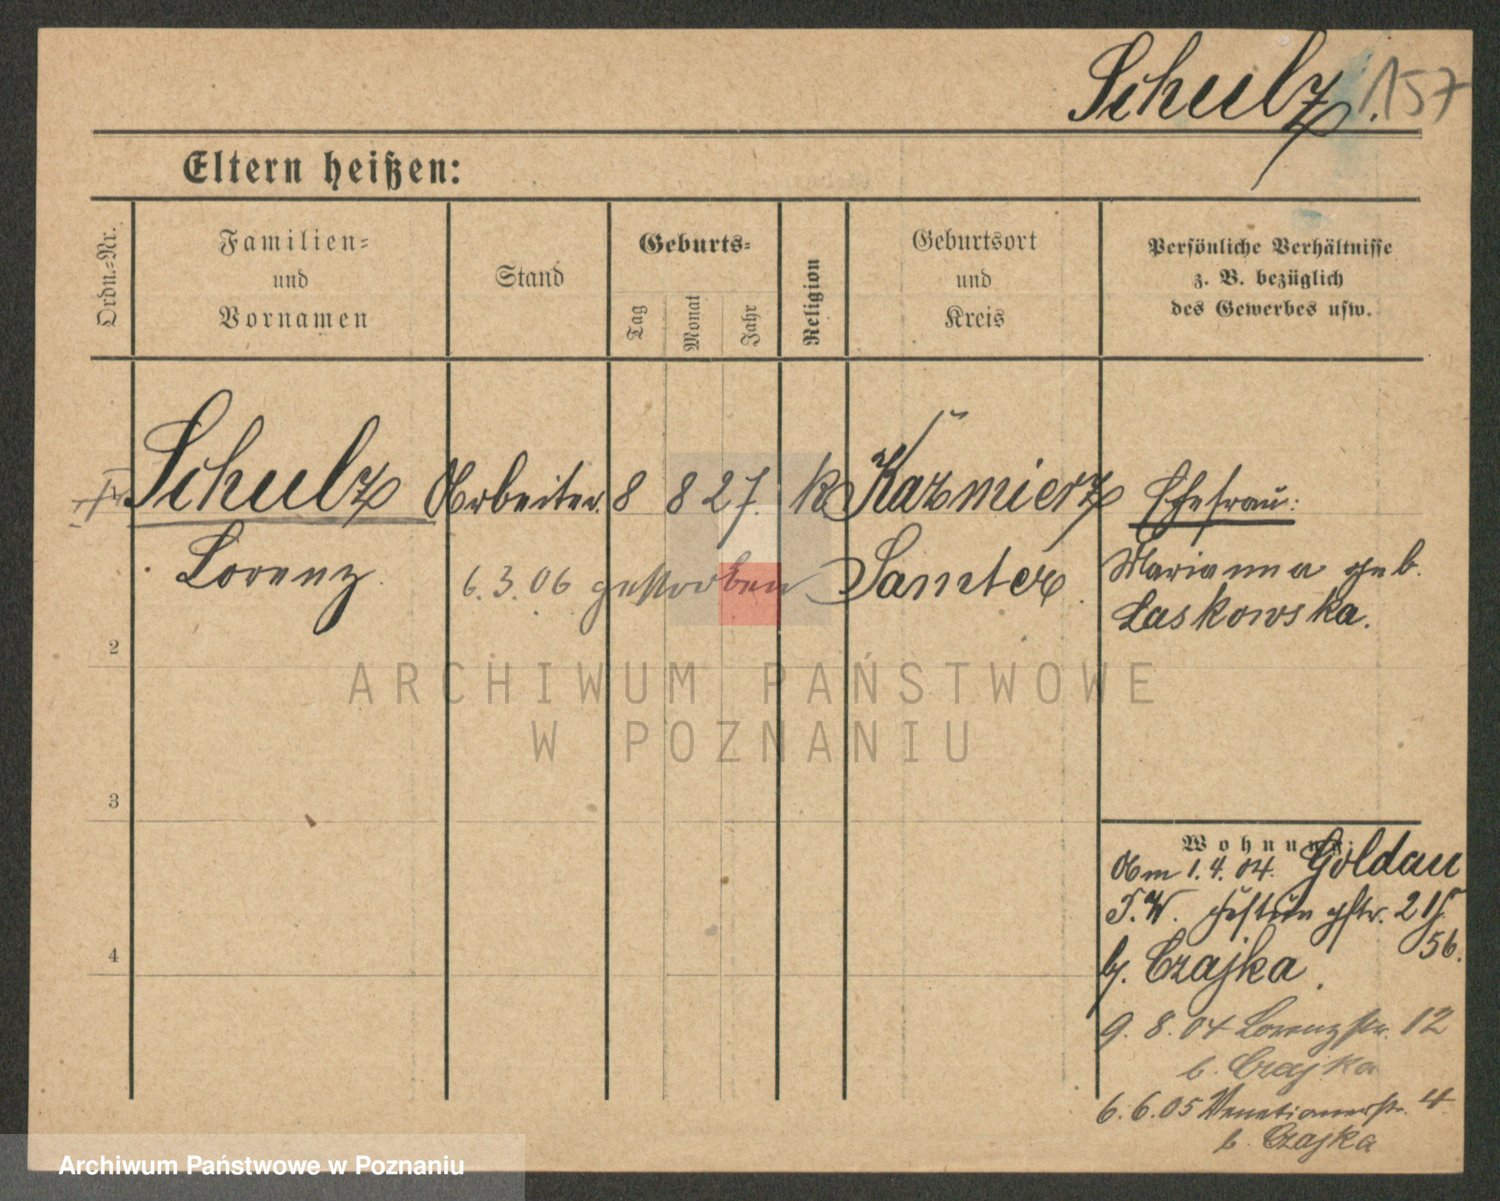 Schulz. 157
Eltern heißen:
Ordn.-Nr.
Familien-
und
Vornamen
Stand
Geburts-
Tag
Monat
Jahr
Religion
Geburtsort
und
Kreis
Persönliche Verhältnisse
z. B. bezüglich
des Gewerbes usw.
Schulz Arbeiter 8 8 27. k Kaźmierz Ehefrau:
Lorenz 6.3.06 gestorben Samter Marianna geb.
Laskowska.
2
3
4
Wohnung:
Am 1.4.04. Goldau
T.W. 2
56.
b. Czajka.
9.8.04 Lorenzstr. 12
b. Czajka
6.6.05 Venetianerstr. 4
b. Czajka
ARCHIWUM PAŃSTWOWE
W POZNANIU
Archiwum Państwowe w Poznaniu